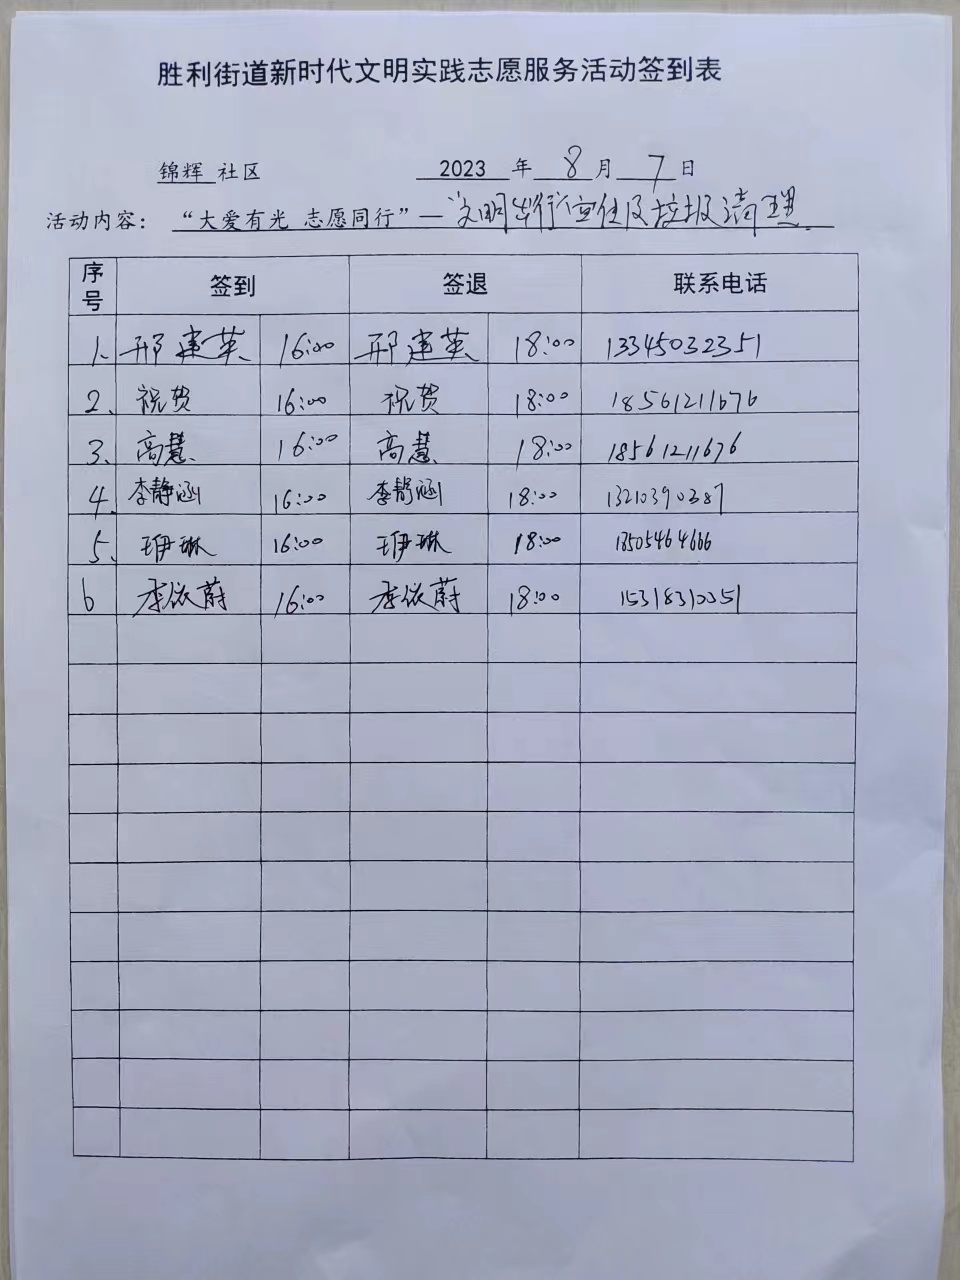 胜利街道新时代文明实践志愿服务活动签到表
锦辉 社区 2023 年 8 月 7 日
活动内容： “大爱有光 志愿同行”—文明举行宣传及垃圾清理
序号 签到 签退 联系电话
1. 邢建英 16:00 邢建英 18:00 13345032351
2. 祝贺 16:00 祝贺 18:00 18561211676
3. 高慧 16:00 高慧 18:00 18561211676
4. 李静涵 16:00 李静涵 18:00 13210390387
5. 王伊琳 16:00 王伊琳 18:00 13505464666
6 李依蔚 16:00 李依蔚 18:00 15318310351